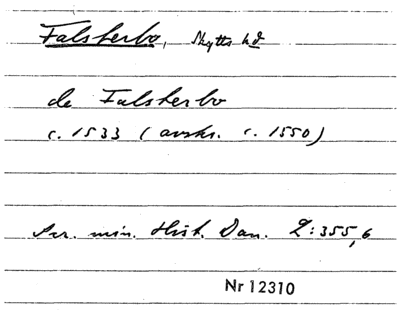 Falsterbo, Skytts hd
de Falsterbo
c. 1533 (avskr. c. 1550)
Scr. min. Hist. Dan. 2:355,6
Nr 12310